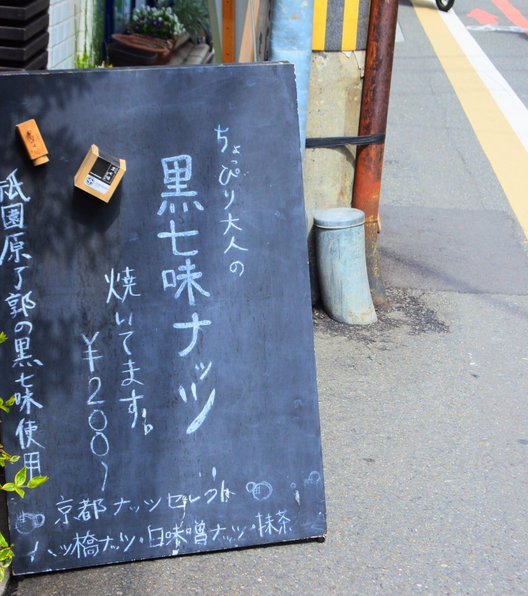 ちょっぴり大人の
黒七味ナッツ
焼いてます。
¥200〜
祇園原了郭の黒七味使用
京都ナッツセレクト
八ツ橋ナッツ・白味噌ナッツ・抹茶